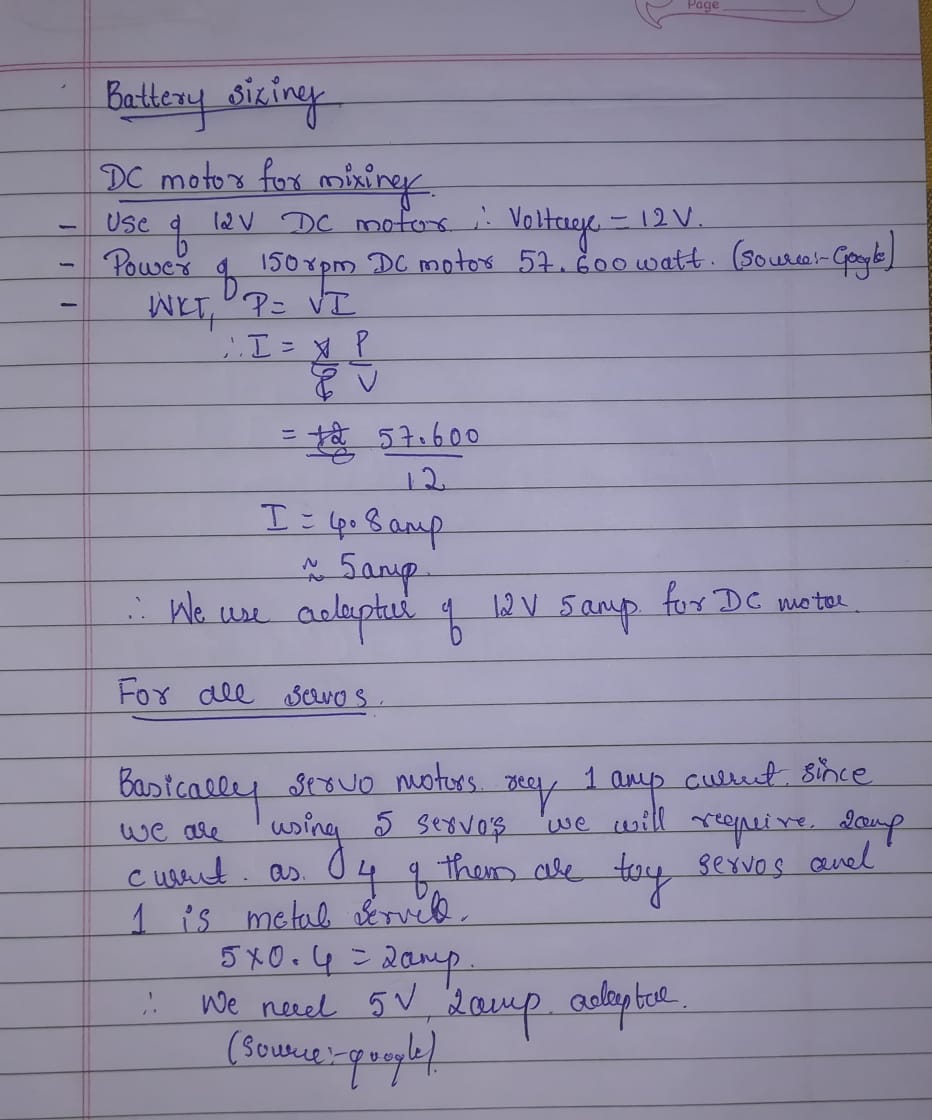 Page
Battery sizing
DC motor for mixing.
- Use of 12V DC motor ∴ Voltage = 12V.
- Power of 150rpm DC motor 57.600watt. (source:- Google)
- WKT, P = VI
∴ I = P/V
= 57.600/12
I = 4.8 amp
≈ 5amp.
∴ We use adaptor of 12V 5amp. for DC motor.
For all servos.
Basically servo motors req 1 amp current. since
we are using 5 servo's we will require. 2amp
current. as. 4 of them are toy servos and
1 is metal servo.
5×0.4 = 2amp.
∴ We need 5V, 2amp. adaptor.
(source:-google).